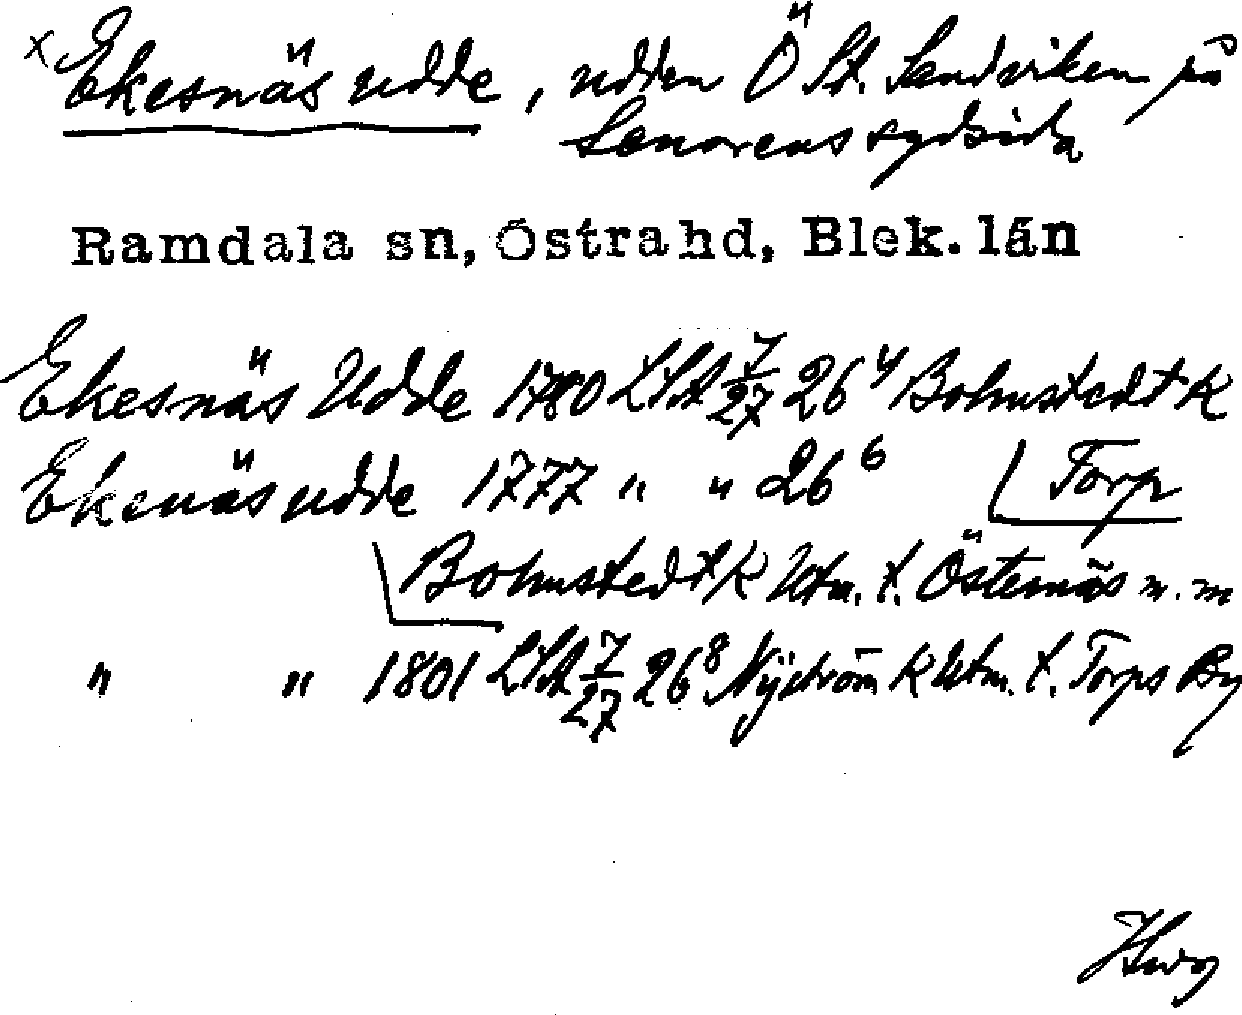 x Ekesnäs udde, udden Ö St. Sandviken på
Senorens sydsida
Ramdala sn, Östra hd, Blek. län
Ekesnäs Udde 1780 LSA 7/27 26⁴ Bohnstedt K
Ekenäs udde 1777 " " 26⁶ Torp
Bohnstedt K Utm. t. Östernäs m. m
" " 1801 LSA 7/27 26⁸ Nyström K Utm. t. Torps By